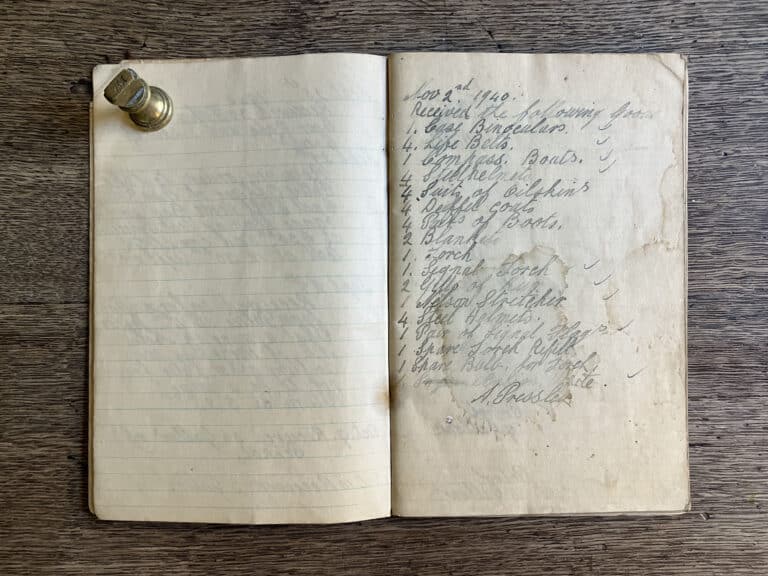 Nov 2nd 1940.
Received the following Goods
1. Case Binoculars.
4. Life Belts.
1 Compass. Boats.
4 Steelhelmets
4 Suits of Oilskins
4 Duffle Coats
4 Pairs of Boots.
2 Blankets
1. Torch
1. Signal Torch
2
1 Neilson Stretcher
4 Steel Helmets
1 Pair of Signal Flags
1 Spare Torch Refill
1 Spare Bulb for Torch,
1
A. Pressle